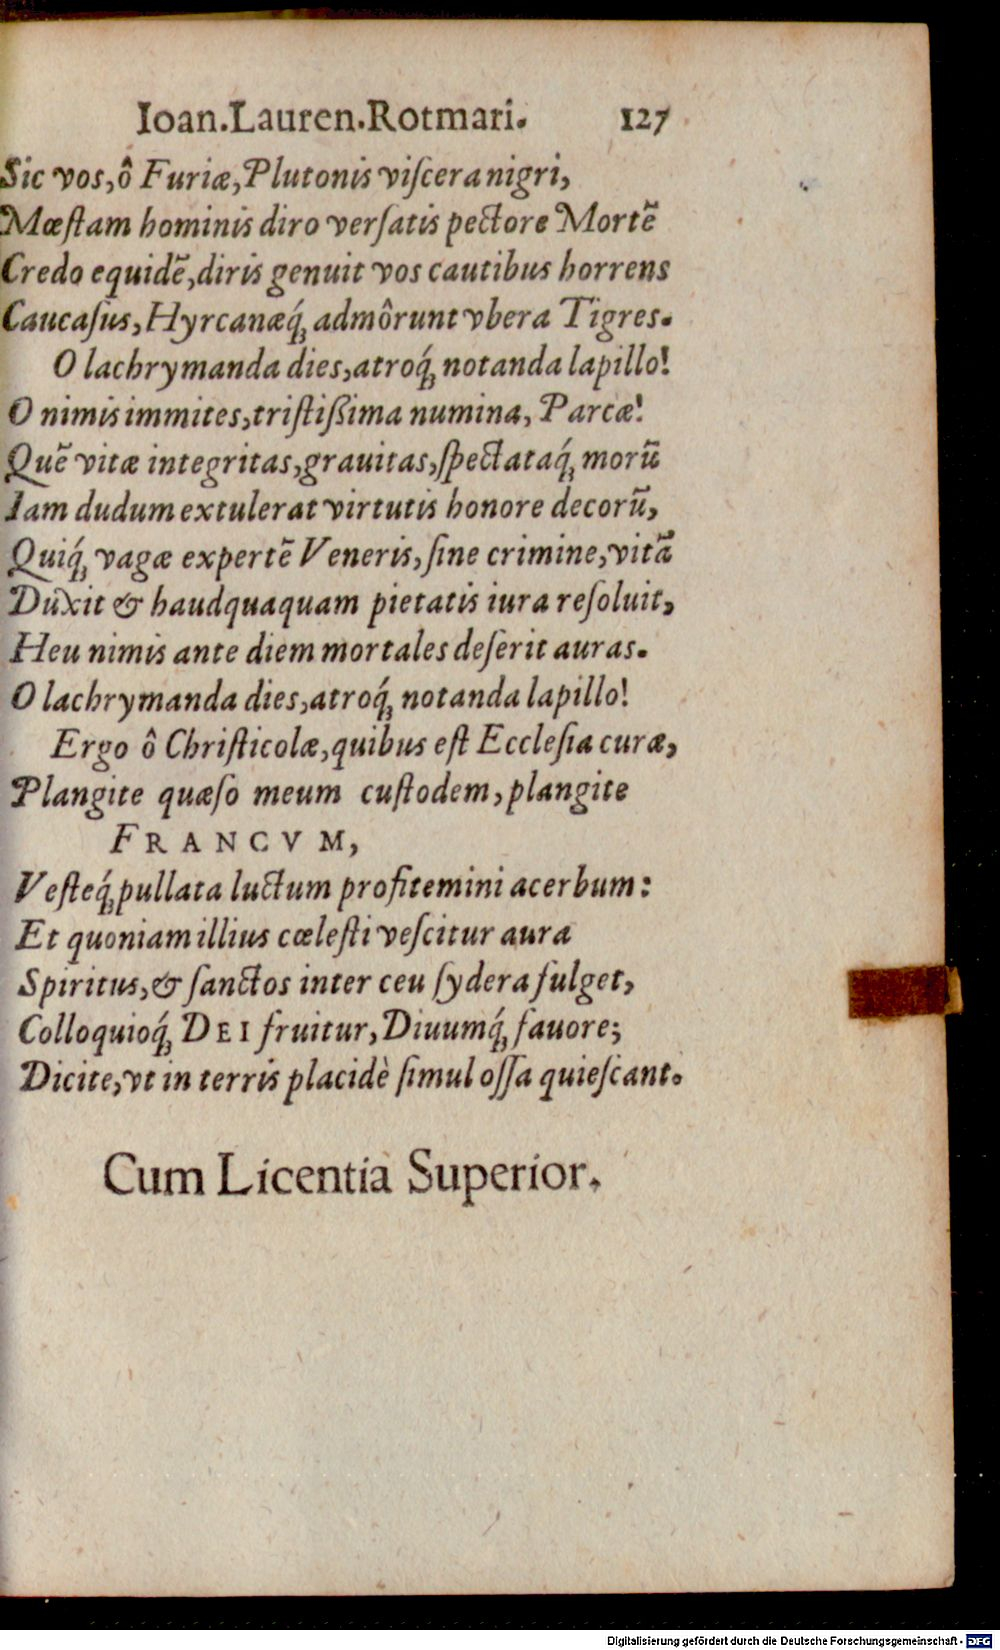 Ioan.Lauren.Rotmari. 127
Sic vos,ô Furiæ,Plutonis viſcera nigri,
Mœſtam hominis diro verſatis pectore Mortẽ
Credo equidẽ,diris genuit vos cautibus horrens
Caucaſus,Hyrcanæq́; admôrunt vbera Tigres.
O lachrymanda dies,atroq́; notanda lapillo!
O nimis immites,triſtiſsima numina, Parcæ!
Quẽ vitæ integritas,grauitas,ſpectataq́; morũ
Iam dudum extulerat virtutis honore decorũ,
Quiq́; vagæ expertẽ Veneris,ſine crimine,vitã
Duxit & haudquaquam pietatis iura reſoluit,
Heu nimis ante diem mortales deſerit auras.
O lachrymanda dies,atroq́; notanda lapillo!
Ergo ô Chriſticolæ,quibus eſt Eccleſia curæ,
Plangite quæſo meum cuſtodem,plangite
FRANCVM,
Veſteq́; pullata luctum profitemini acerbum:
Et quoniam illius cœleſti veſcitur aura
Spiritus,& ſanctos inter ceu ſydera fulget,
Colloquioq́; DEI fruitur,Diuumq́; fauore;
Dicite,vt in terris placidè ſimul oſſa quieſcant.
Cum Licentia Superior.
Digitalisierung gefördert durch die Deutsche Forschungsgemeinschaft - DFG